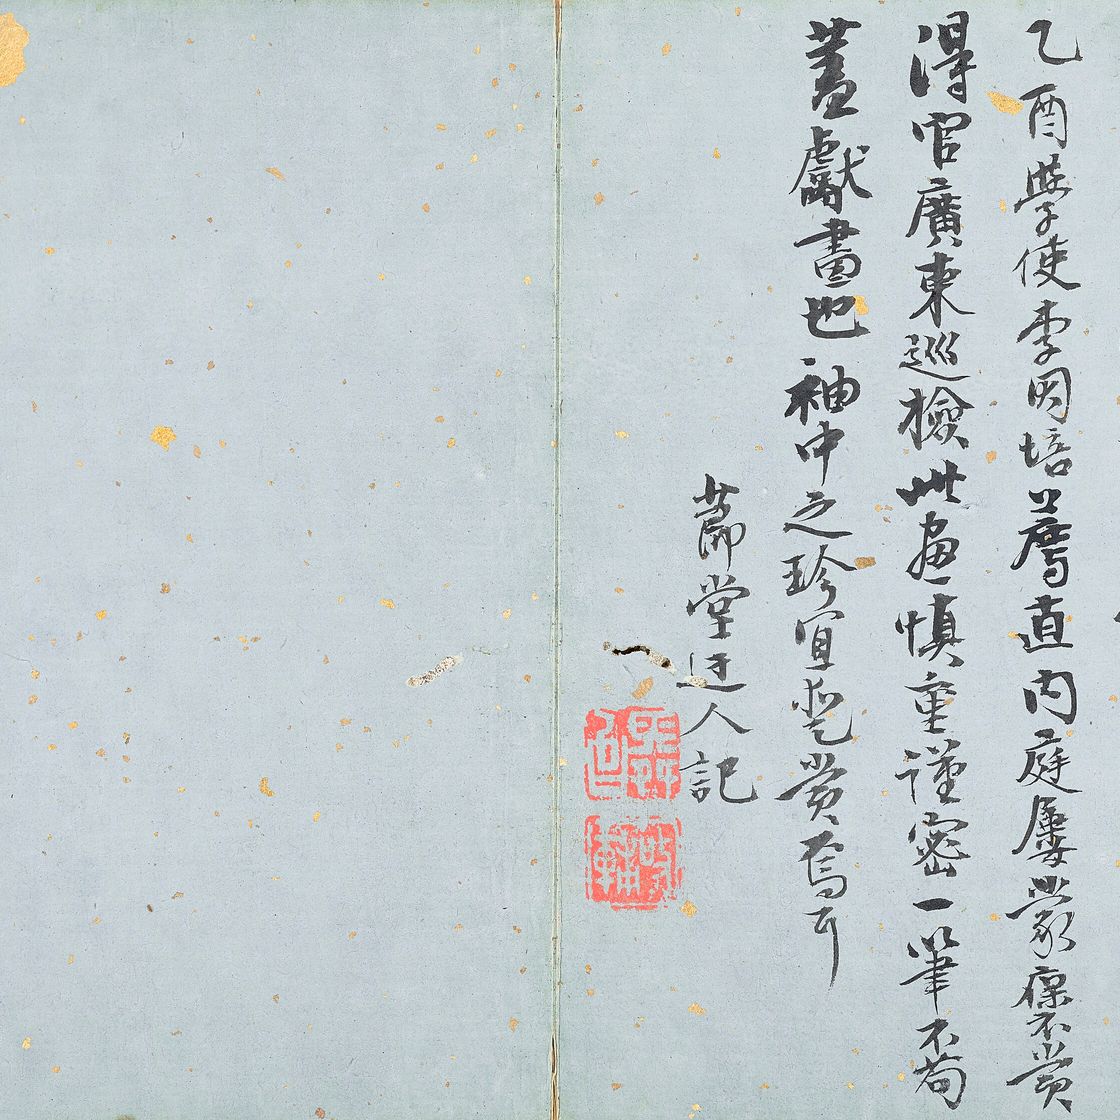 乙酉學使李因培薦直內庭屢蒙褒賞
得官廣東巡檢此畫慎重謹密一筆不苟
蓋獻畫也袖中之珍宜賞焉耳
莭堂迂人記